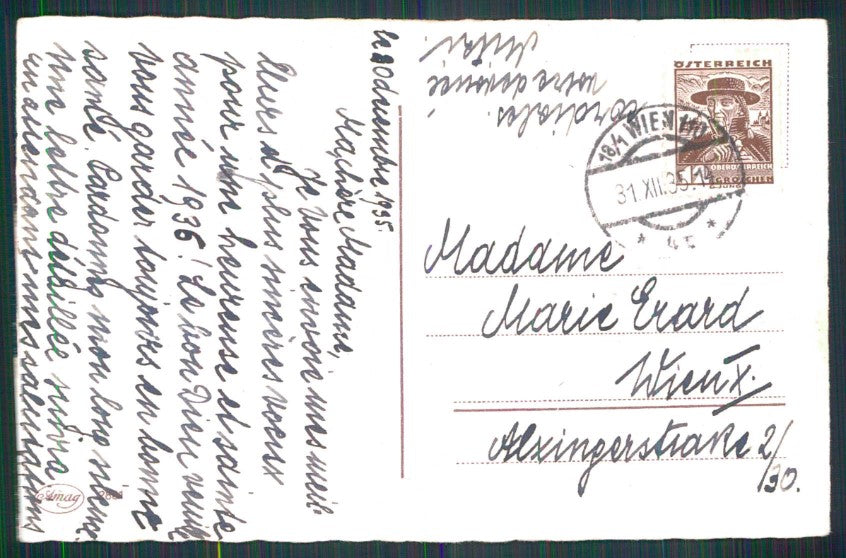 le 30 Decembre 1935.
Ma chère Madame,
Je vous envoie mes meil-
leurs et plus sincères voeux
pour une heureuse et sainte
année 1936! Le bon Dieu veuille
vous garder toujours en bonne
santé. Pardonnez mon long silence.
Une lettre détaillée suivra
en attendant mes salutations
cordiales
votre dévouée
ÖSTERREICH
OBERÖSTERREICH
GROSCHEN
18/1 WIEN
31.XII.35.
* 4c *
Madame
Marie Erard
Wien X.
Alxingerstraße 2/
30.
Amag